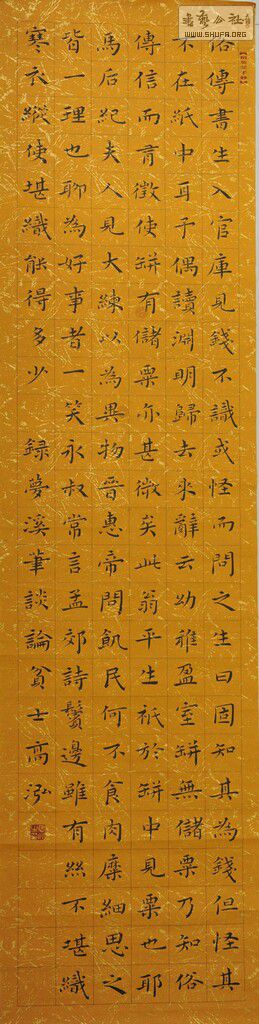 俗傳書生入官庫見錢不識或怪而問之生曰固知其為錢但怪其
不在紙中耳予偶讀淵明歸去來辭云幼稚盈室缾無儲粟乃知俗
傳信而有徵使缾有儲粟亦甚微矣此翁平生祇於缾中見粟也耶
馬后紀夫人見大練以為異物晉惠帝問飢民何不食肉糜細思之
皆一理也聊為好事者一笑永叔常言孟郊詩鬢邊雖有絲不堪織
寒衣縱使堪織能得多少 錄夢溪筆談論貧士高泓
WWW.SHUFA.ORG